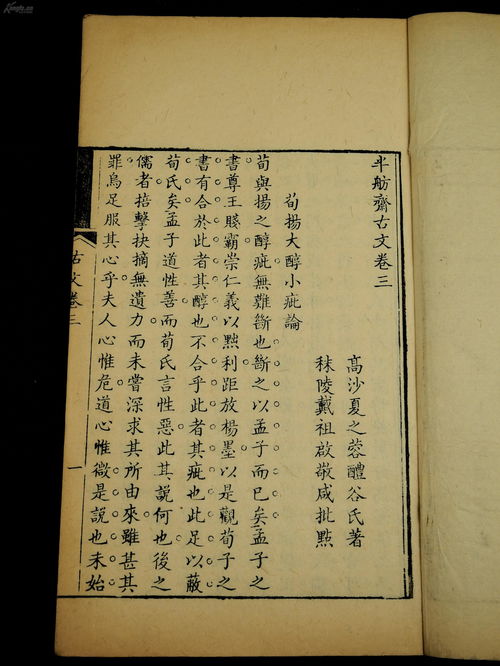 半舫齋古文卷三
高沙夏之蓉醴谷氏著
秣陵戴祖啟敬咸批點
荀揚大醇小疵論
荀與揚之醇疵無難斷也斷之以孟子而已矣孟子之
書尊王賤霸崇仁義以黜利距放楊墨以是觀荀子之
書有合於此者其醇也不合乎此者其疵也此足以蔽
荀氏矣孟子道性善而荀氏言性惡此其說何也後之
儒者掊擊抉摘無遺力而未嘗深求其所由來雖甚其
罪烏足服其心乎夫人心惟危道心惟微是說也未始
古文卷三
一
Kongfz.cn